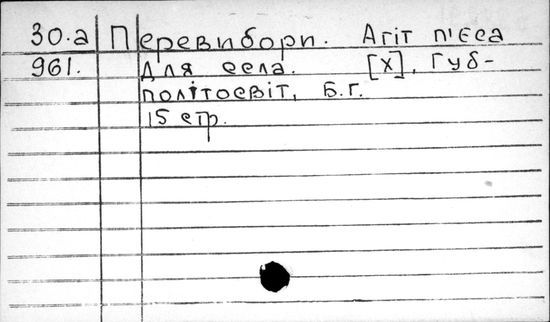 30.а Перевибори. Агіт п'єса
961. для села. [Х], Губ-
політосвіт, Б.Г.
15 стр.